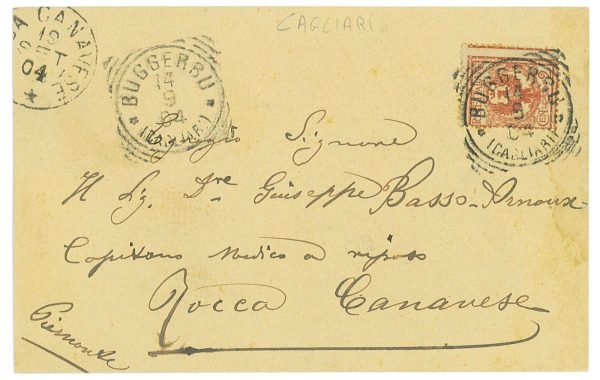 CAGLIARI
CANAVESE
04
BUGGERRU
14
9
04
(CAGLIARI)
BUGGERRU
14
9
04
(CAGLIARI)
Signore
Il Sig. Dre Giuseppe Basso-Arnoux
Capitano Medico a riposo
Rocca Canavese
Piemonte